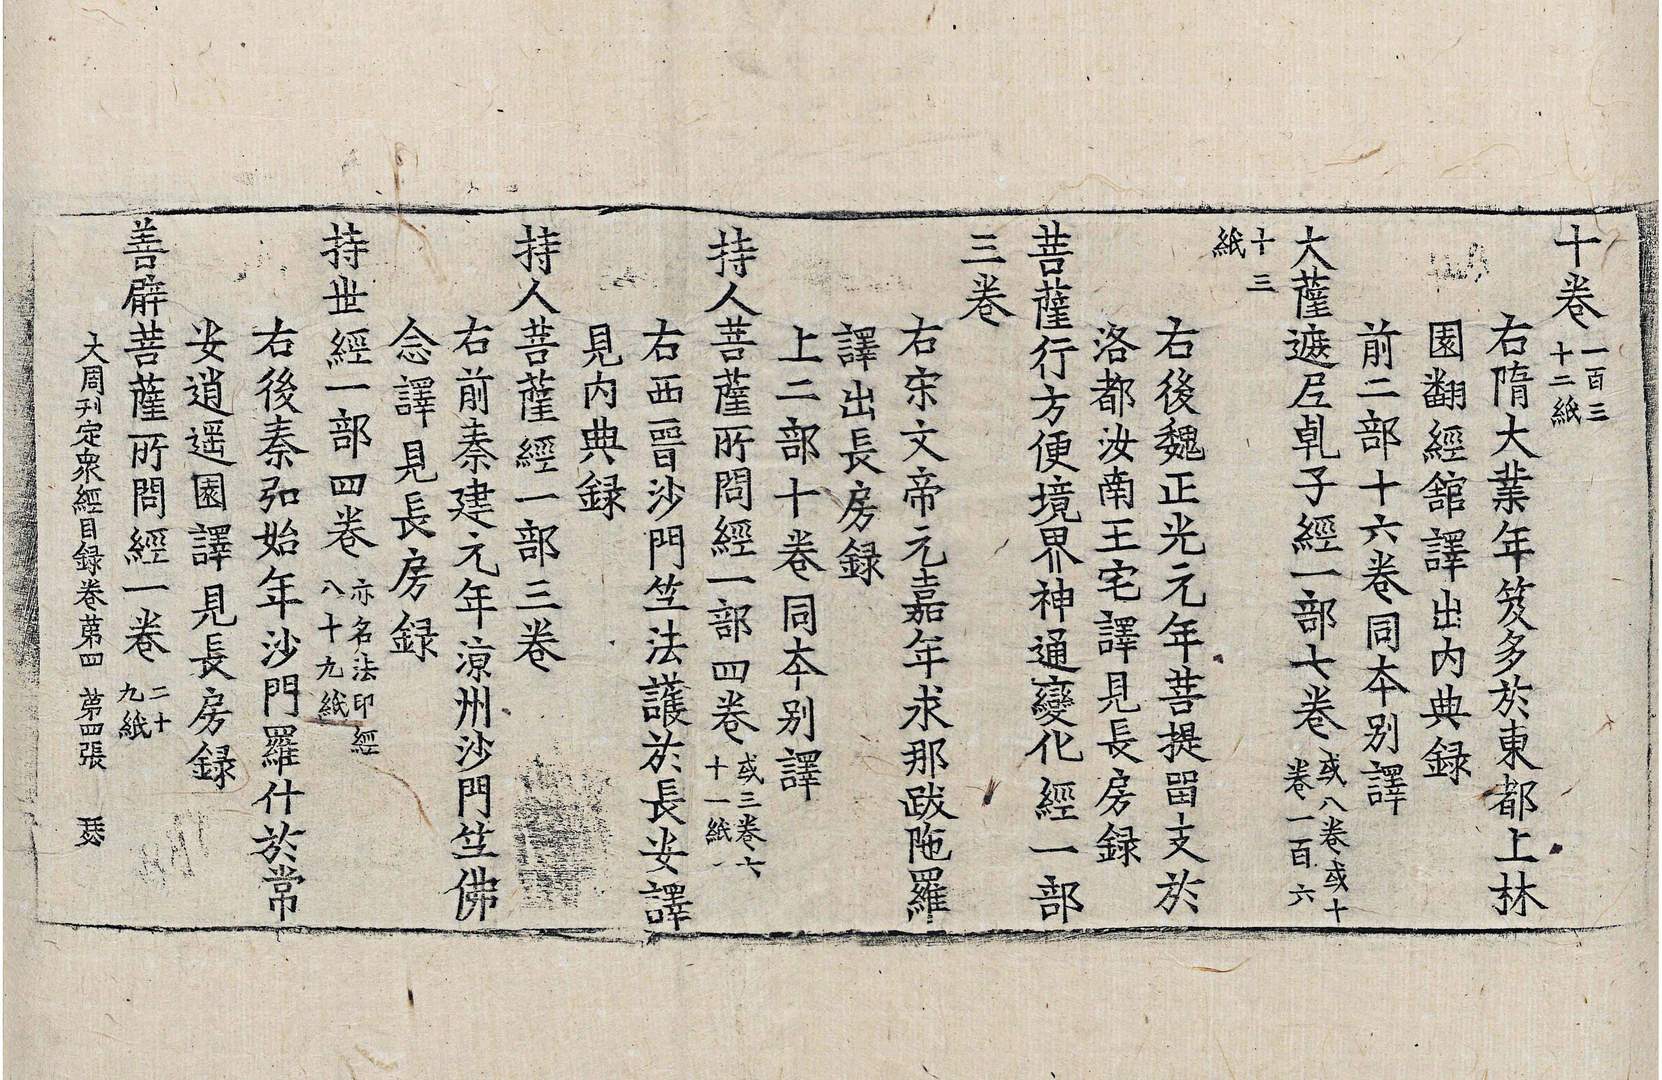 十卷一百三十二紙
右隋大業年笈多於東都上林
園翻經舘譯出内典録
前二部十六卷同本別譯
大薩遮尼乹子經一部七卷或八卷或十卷一百六
十三紙
右後魏正光元年菩提畱支於
洛都汝南王宅譯見長房録
菩薩行方便境界神通變化經一部
三卷
右宋文帝元嘉年求那跋陁羅
譯出長房録
上二部十卷同本別譯
持人菩薩所問經一部四卷或三卷六十一紙
右西晉沙門竺法護於長安譯
見内典録
持人菩薩經一部三卷
右前秦建元年涼州沙門竺佛
念譯見長房録
持世經一部四卷亦名法印經八十九紙
右後秦弘始年沙門羅什於常
安逍遥園譯見長房録
善臂菩薩所問經一卷二十九紙
大周刊定衆經目録卷第四 第四張 瑟